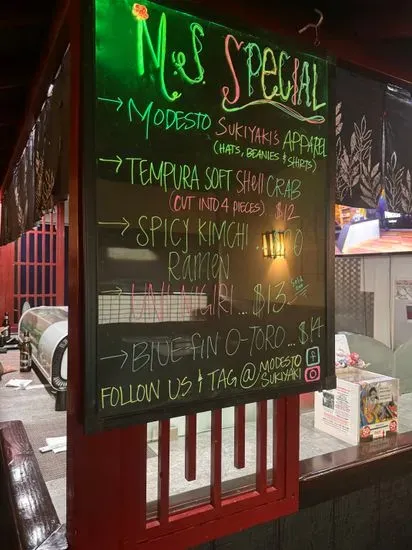 M.S. SPECIAL
→ MODESTO SUKIYAKI'S APPAREL
(HATS, BEANIES & SHIRTS)
→ TEMPURA SOFT SHELL CRAB
(CUT INTO 4 PIECES) $12
→ SPICY KIMCHI
RAMEN
→ UNI NIGIRI... $13
→ BLUEFIN O-TORO... $14
FOLLOW US & TAG @ MODESTO
SUKIYAKI